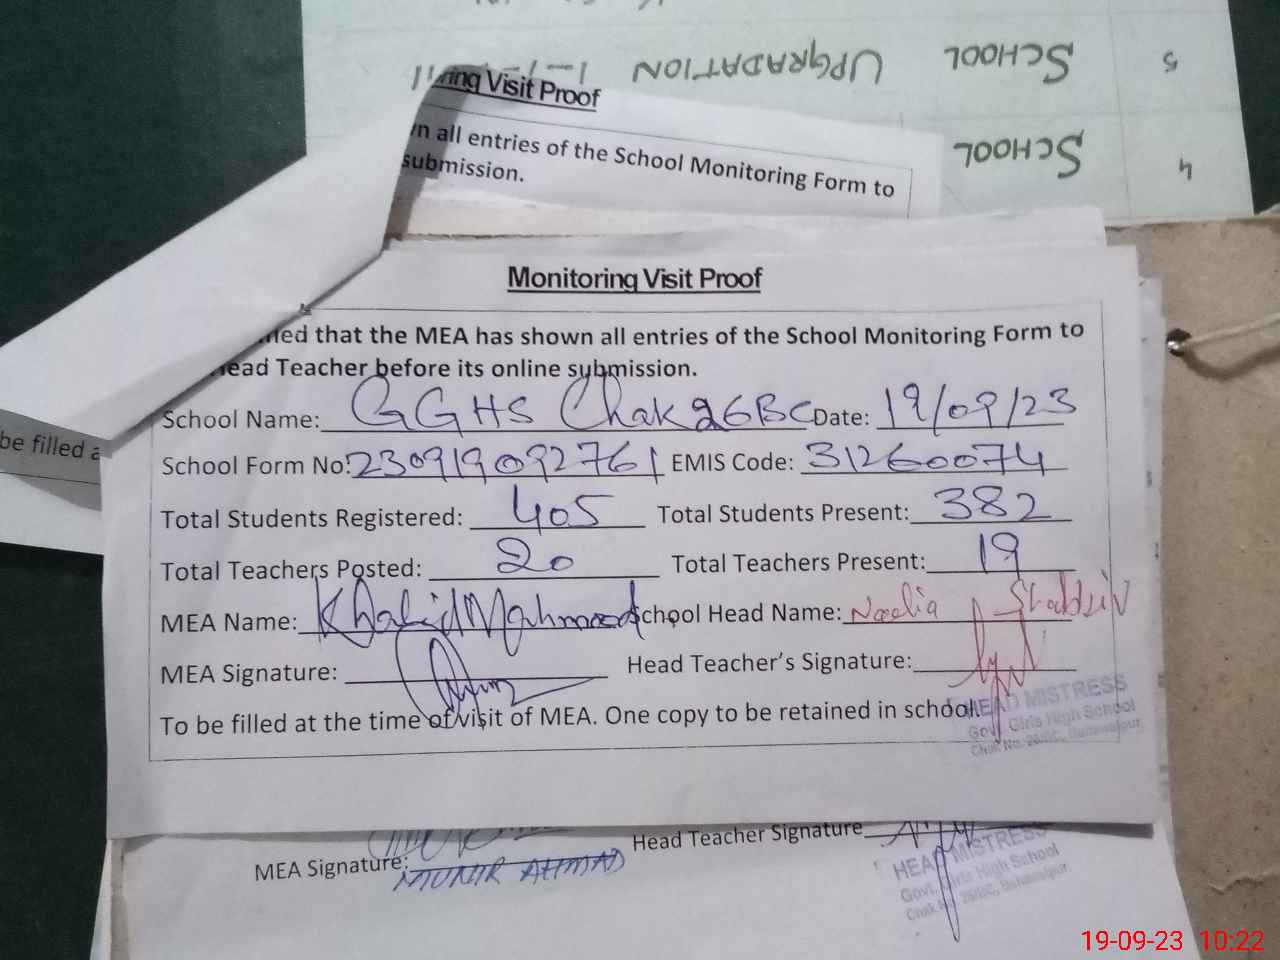 UPGRADATION SCHOOL 5
SCHOOL 4
ring Visit Proof
n all entries of the School Monitoring Form to
submission.
Monitoring Visit Proof
ied that the MEA has shown all entries of the School Monitoring Form to
ead Teacher before its online submission.
School Name: GGHS Chak 26BC Date: 19/09/23
School Form No: 230919092761 EMIS Code: 31260074
Total Students Registered: 405 Total Students Present: 382
Total Teachers Posted: 20 Total Teachers Present: 19
MEA Name: Khalid Mahmood School Head Name: Nadia
MEA Signature: Head Teacher's Signature:
To be filled at the time of visit of MEA. One copy to be retained in school.
HEAD MISTRESS
Govt. Girls High School
Chak No. 26/BC, Bahawalpur
be filled a
Head Teacher Signature
MEA Signature:
MUNIR AHMAD
HEAD MISTRESS
Govt. Girls High School
Chak No. 26/BC, Bahawalpur
19-09-23 10:22